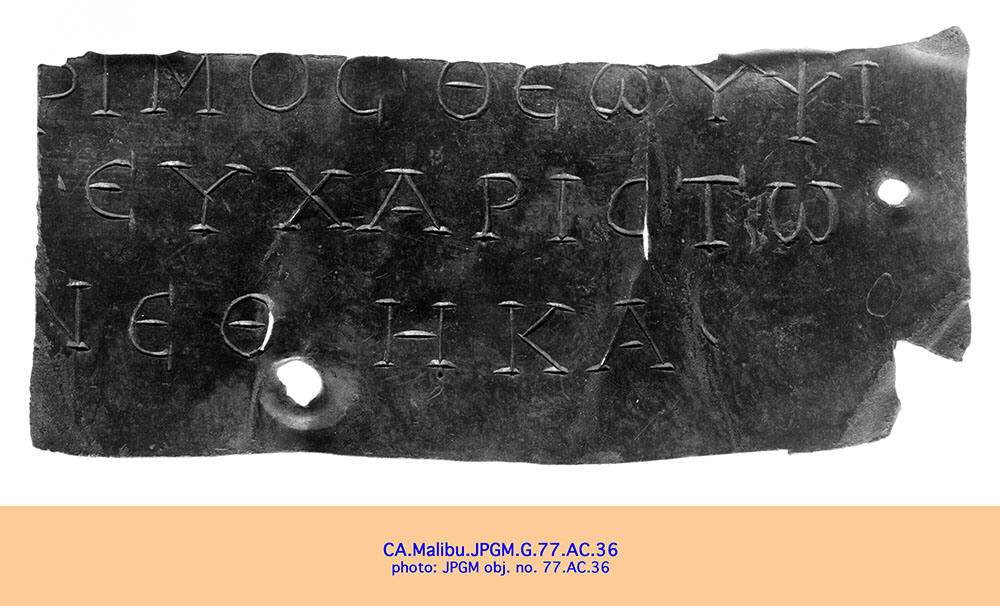 ΡΙΜΟϹ ΘΕΩ ΥΨΙ
ΕΥΧΑΡΙϹΤΩ
ΝΕΘΗΚΑ
CA.Malibu.JPGM.G.77.AC.36
photo: JPGM obj. no. 77.AC.36